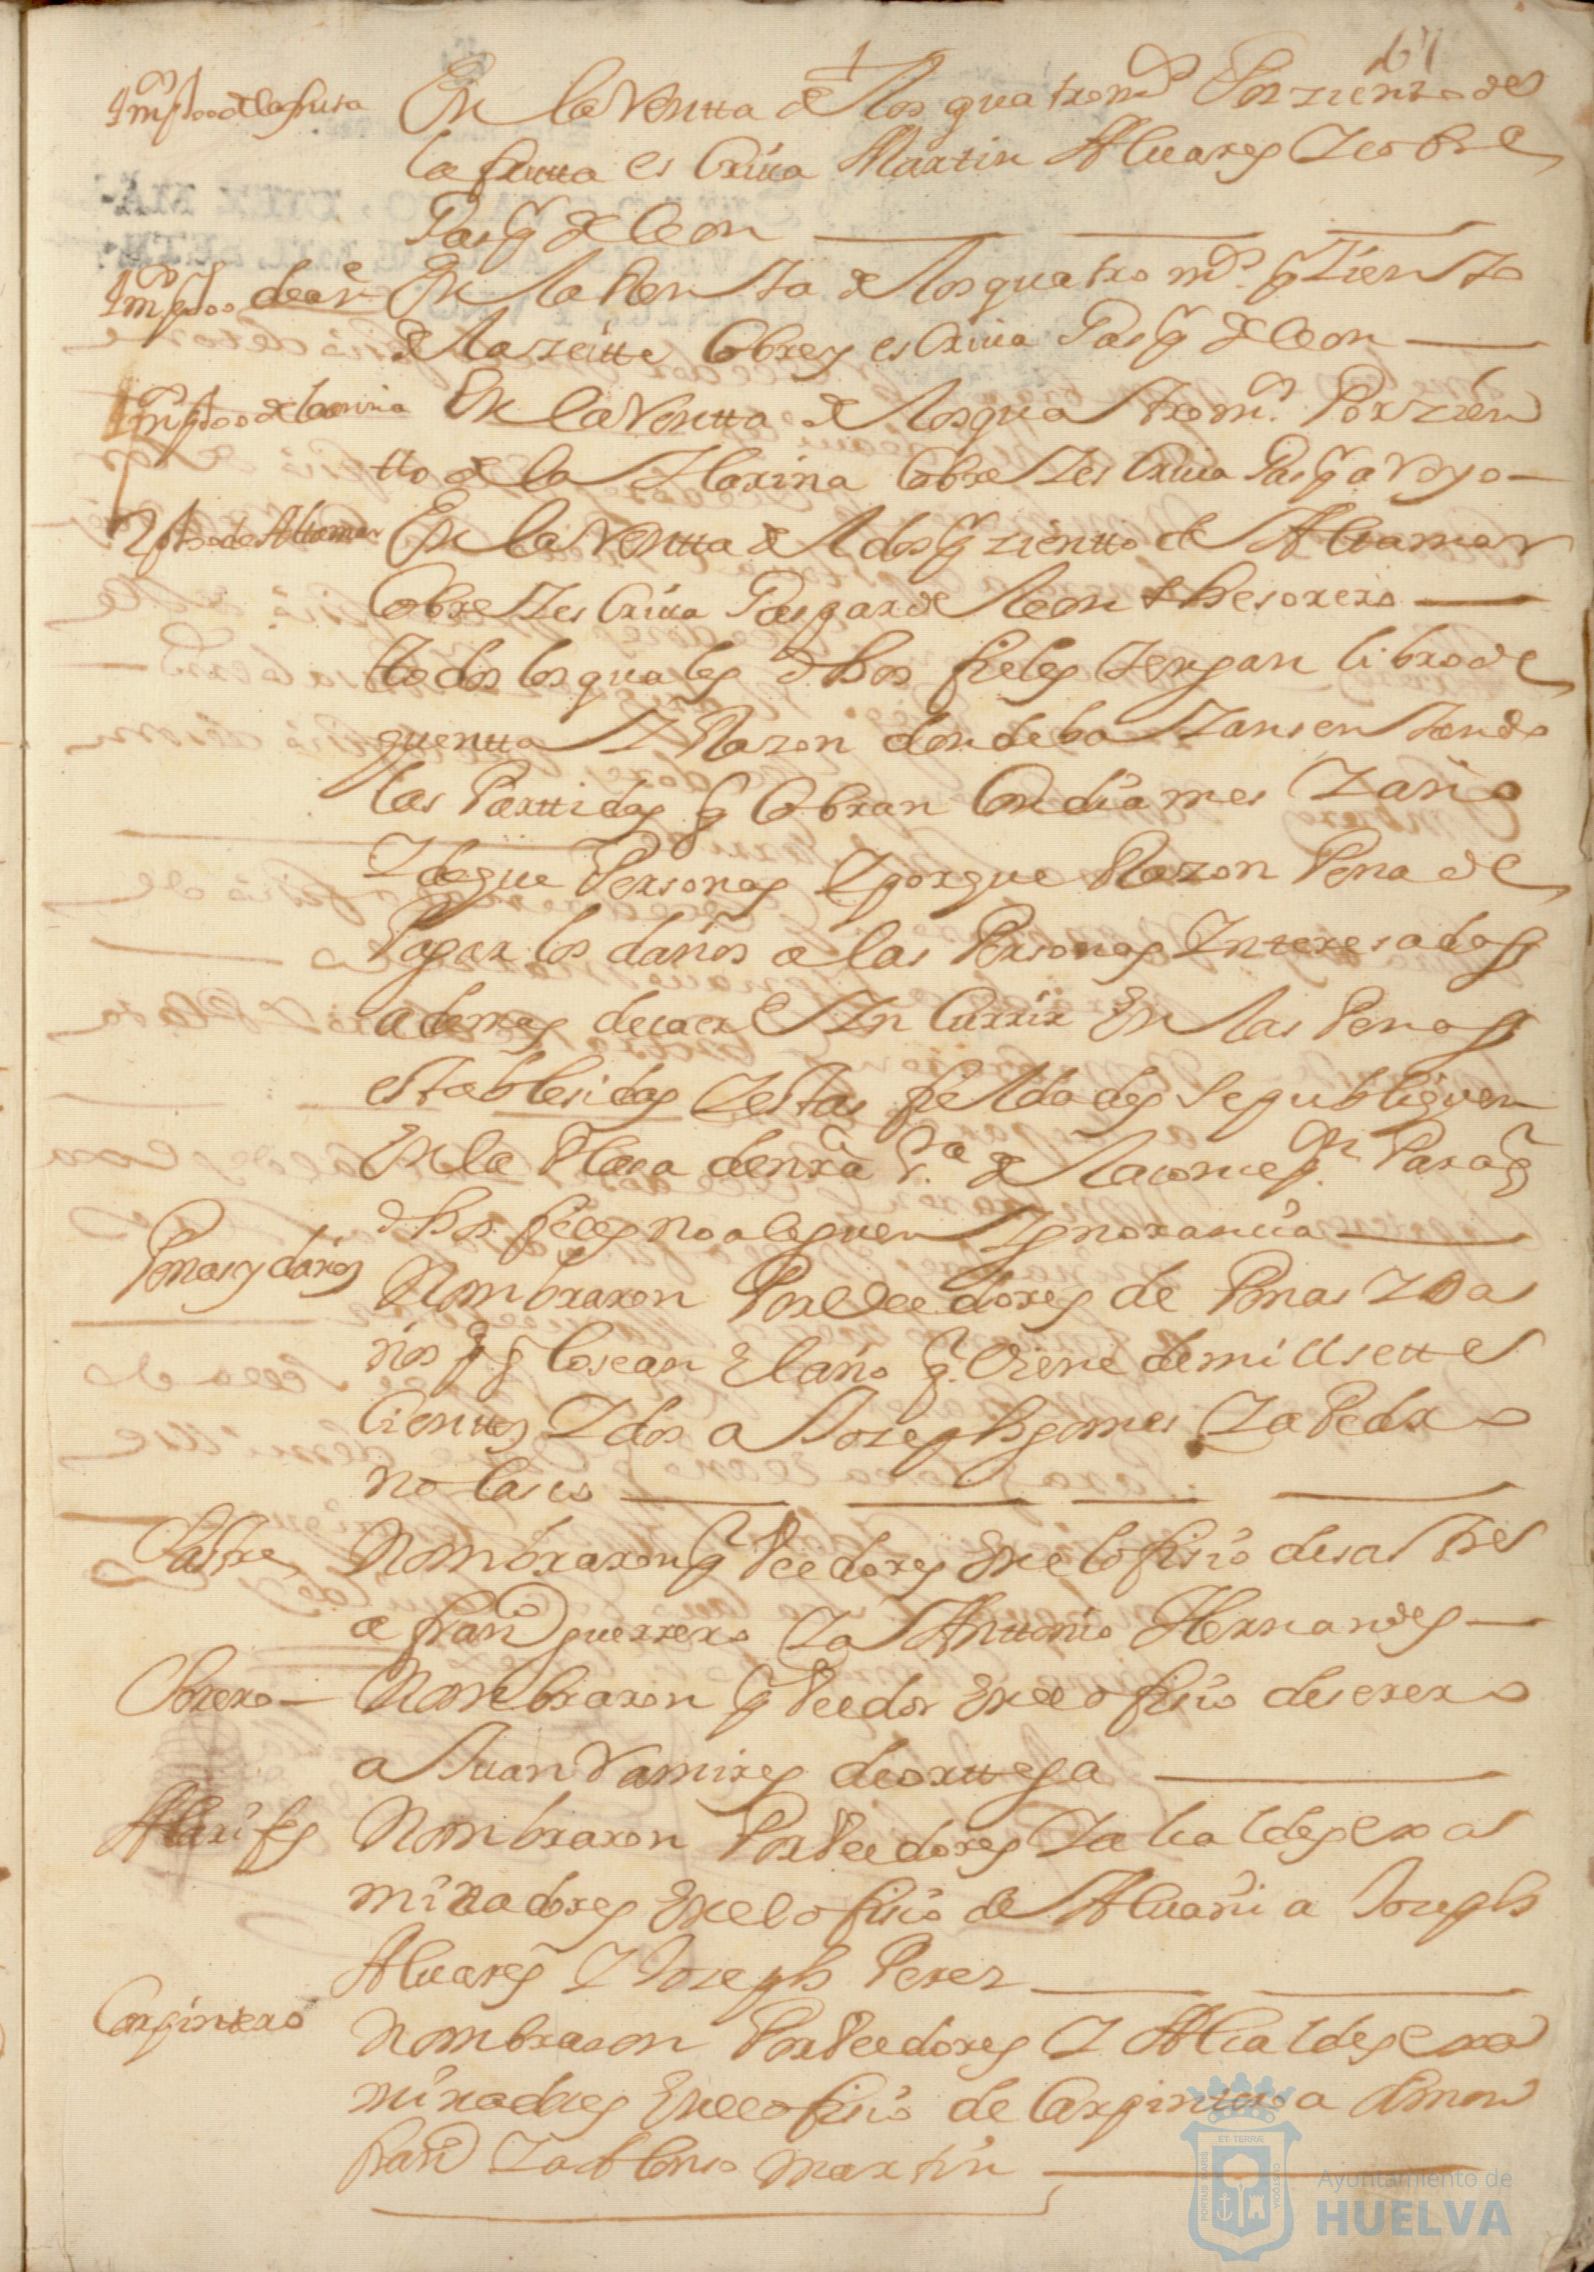 67
Impto de la fruta
En la Ventta de los quatro ms Por ziento de
la frutta escriua Martin Aluares y cobre
Gaspr de leon
Impto de aze
En la Venta de los quatro ms pr ziento
de lazeitte Cobre y escriua Gaspr de leon
Impto de la arina
En la Ventta de los quatro ms Por zien
tto de la Harina Cobre y escriua Gaspr arroyo
2 pto de Altamar
En la Ventta del dos pr zientto de Altamar
Cobre y escriua Gaspar de leon thesorero
todos los quales dhos fieles tengan libro de
quentta y Razon donde baian sentando
las Parttidas q Cobran Con dia mes y año
y de que Personas y porque Razon Pena de
Pagar los daños a las Personas Interesadas
ademas de caer e Incurrir En las Penas
establesidas y estas fieldades se publiquen
En la Plasa de nra Va de la corriente Para q
dhos fieles no aleguen Ygnorancia
Penas y daños
Nombraron Por Veedores de Penas y Da
ños pa q lo sean el año q Viene de mill sette
Cienttos y dos a Joseph gomes y a Pedro
nolasco
Sastres
Nombraron pr Veedores En el ofisio de sastre
a franco guerrero y a Anttonio Hernandes
Serero
Nombraron pr Veedor En el ofisio de serero
a Juan Ramires de orttega
Alarifes
Nombraron Por Veedores y alcaldes exsa
minadores En el ofisio de Aluañi a Joseph
Aluares y Joseph Peres
Carpintero
Nombraron Por Veedores y Alcaldes exsa
minadores En el ofisio de Carpintero a Simon
franco y a Alonso Martin
PORTUS MARIS
ET TERRÆ
CUSTODIA
Ayuntamiento de
HUELVA